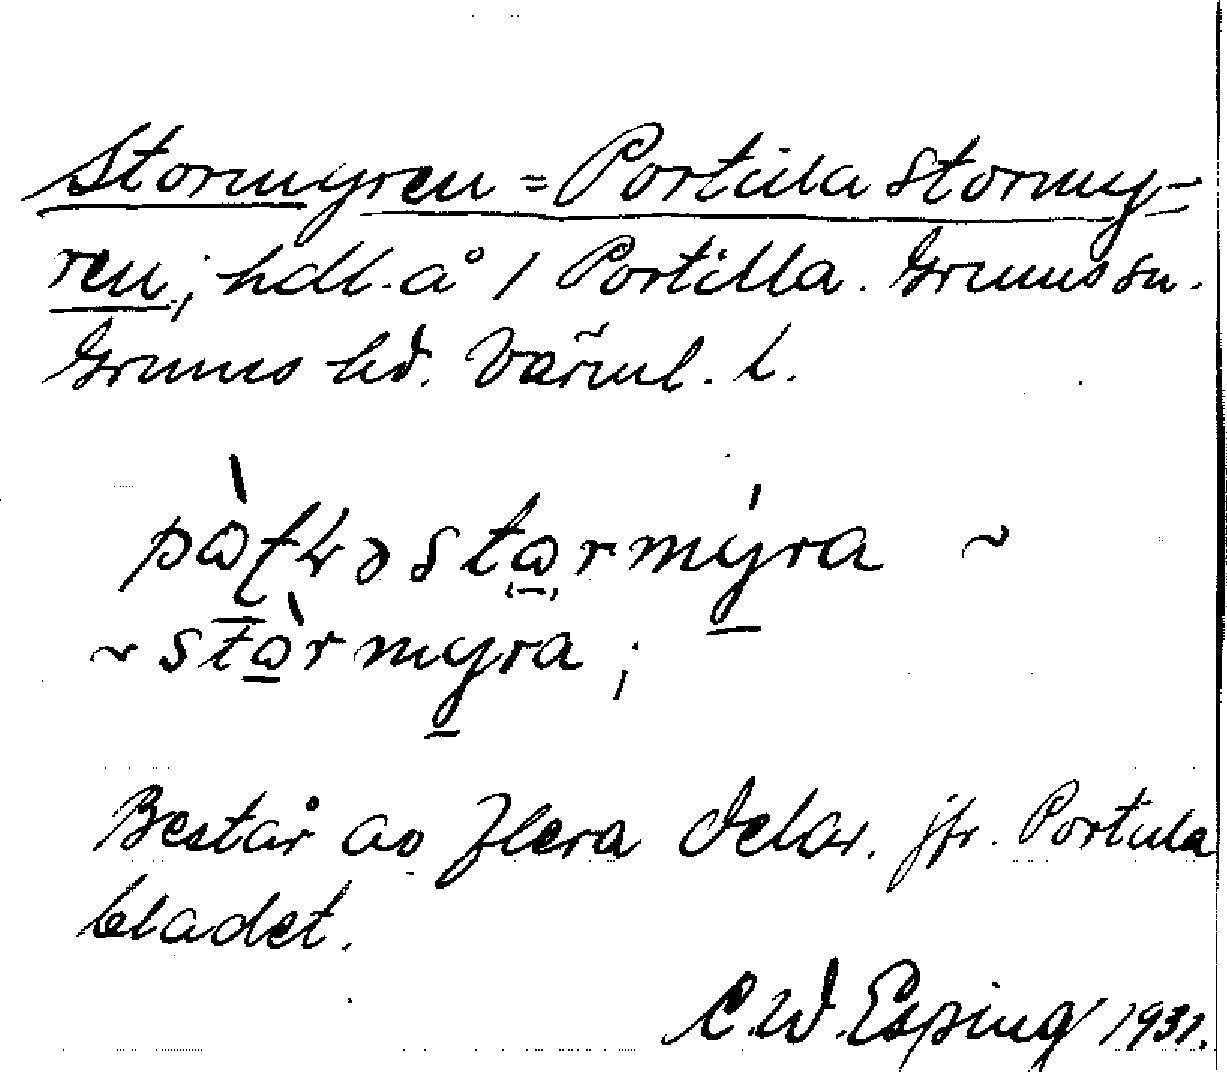 Stormyren = Portilla stormy-
ren; hdl. å 1 Portilla. Grums sn.
Grums hd. Värml. l.
~
~ stòrmyra;
Består av flera delar. jfr. Portilla
bladet.
C.W. Esping 1931.